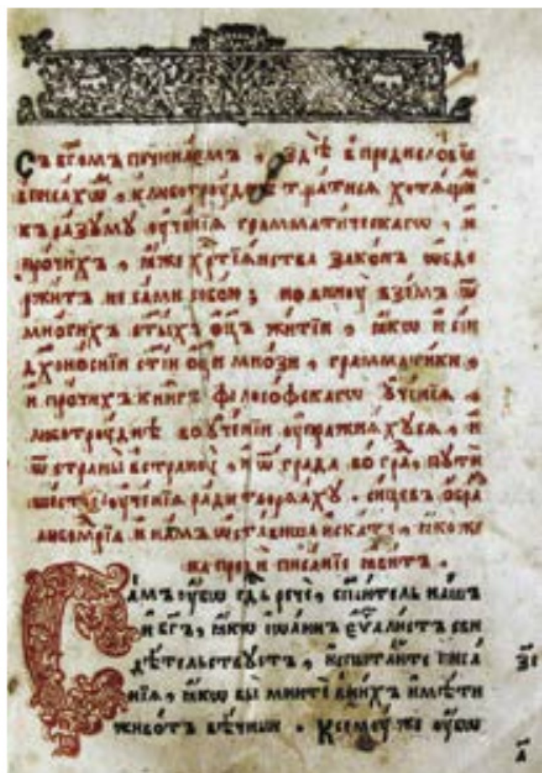 Съ бг҃омъ починаемъ , здѣ в предисловїе
вписахѡ , к люботрꙋднѣ тщатисѧ хотѧщи
къ разꙋмꙋ оу҆ченїѧ грамматическагѡ , и
прочихъ , ꙗже хрⷭ҇тїѧнства законъ ѡбде
ржит не сами собою ; но винꙋ взем ѿ
многихъ ст҃ыхъ оц҃ъ житїи , ꙗкѡ и сїи
дх҃оноснїи ст҃їи оц҃и мнози , грамматики ,
и прочихъ книгъ философскагѡ оу҆ченїѧ ,
люботрꙋднѣ во оу҆ченїи оу҆пражнѧхꙋсѧ , и
ѿ страны в странꙋ , и ѿ града во гра , пꙋти
шествїе оу҆ченїѧ ради творѧахꙋ . сицевъ обра
любомрїѧ и нам ѡставиша искати , ꙗкоже
на пре и писанїе ꙗвит .
Самъ оу҆бѡ гдⷭ҇ь рече , сп҃ситель нашъ
и бг҃ъ , ꙗкѡ іѡаннъ еѵⷢ҇алистъ сви
дѣтельствꙋетъ , испытаите писа
нїѧ , ꙗкѡ вы мните в них имѣти
животъ вѣчныи . К семꙋ же оу҆бѡ